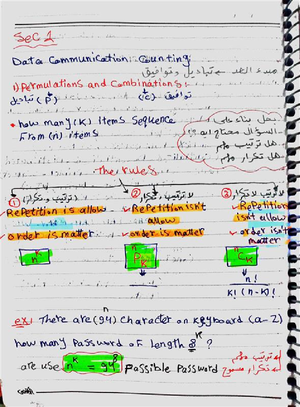 Sec 1
Data Communication: Counting
مبدء العد ← تباديل وتوافيق
1) Permulations and Combinations:
تباديل (P) توافيق (C)
• how many (K) items sequence
From (n) items
بحل بناء على
السؤال محتاج ايه؟
هل ترتيب مهم
هل تكرار مهم
The rules
① (ترتيب وتكرار)
Repetition is allow
order is matter
n^K
② لا تكرار
Repetition isn't
allow
order is matter
P K
③ لا ترتيب لا تكرار
Repetition
isn't allow
order isn't
matter
C K
n!
K! (n-K)!
ex: There are (94) character on keyboard (a-z)
how many Password of length 8 ?
are use n^K = 94^8 possible Password